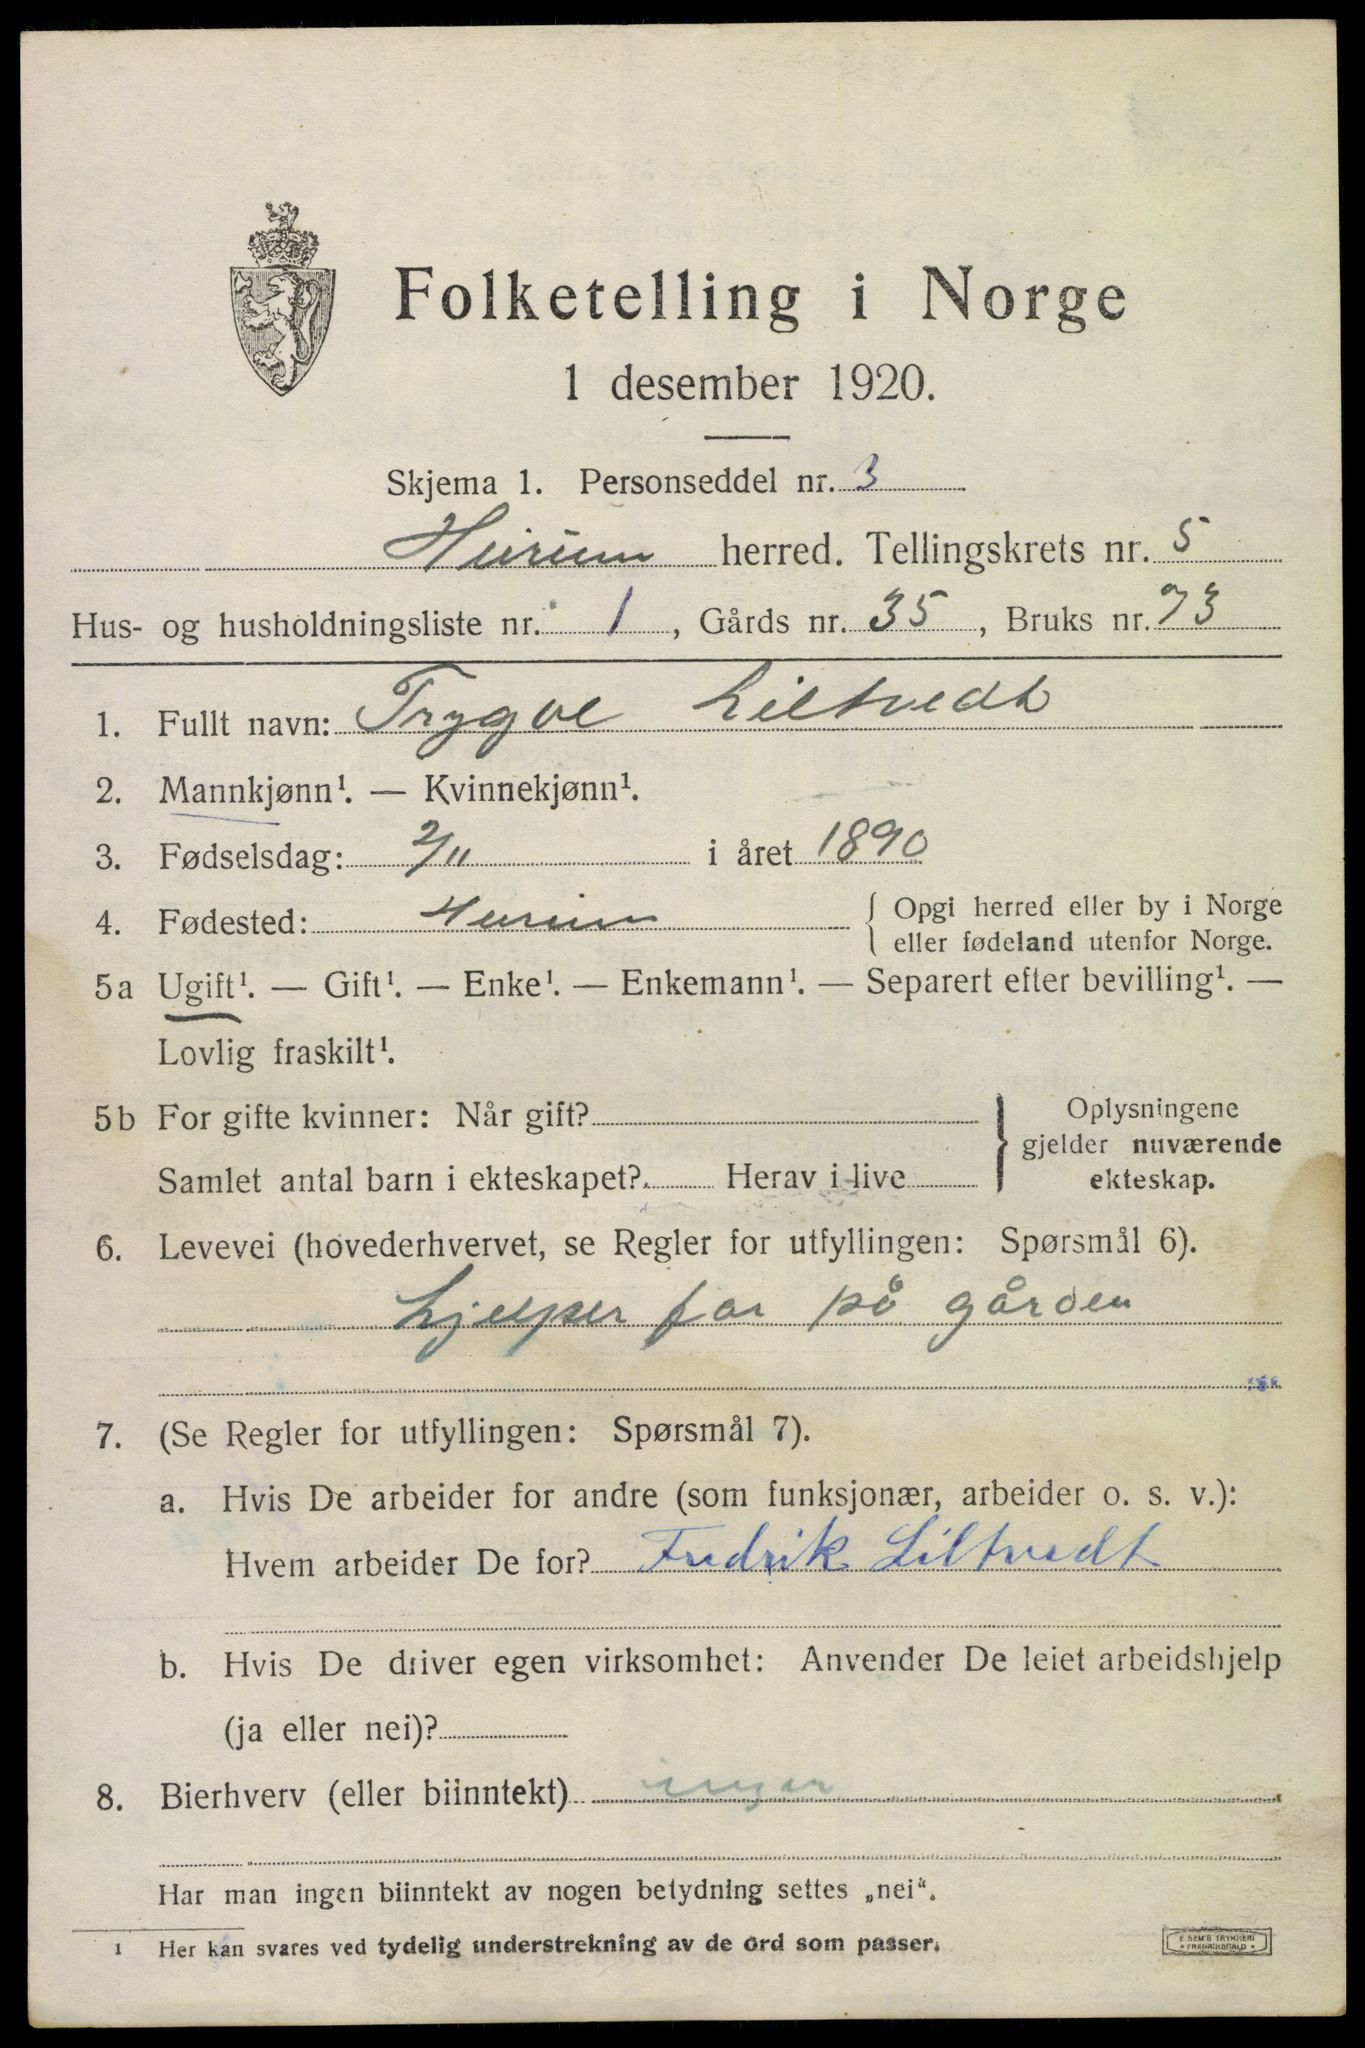 Folketelling i Norge
1 desember 1920.
Skjema 1. Personseddel nr. 3
Hurum herred. Tellingskrets nr. 5
Hus- og husholdningsliste nr. 1, Gårds nr. 35, Bruks nr. 73
1. Fullt navn: Trygve Liltvedt
2. Mannkjønn¹. — Kvinnekjønn¹.
3. Fødselsdag: 2/11 i året 1890
4. Fødested: Hurum { Opgi herred eller by i Norge
eller fødeland utenfor Norge.
5a Ugift¹. — Gift¹. — Enke¹. — Enkemann¹. — Separert efter bevilling¹. —
Lovlig fraskilt¹.
5b For gifte kvinner: Når gift? } Oplysningene
gjelder nuværende
ekteskap.
Samlet antal barn i ekteskapet? Herav i live
6. Levevei (hovederhvervet, se Regler for utfyllingen: Spørsmål 6).
hjelper far på gården
7. (Se Regler for utfyllingen: Spørsmål 7).
a. Hvis De arbeider for andre (som funksjonær, arbeider o. s. v.):
Hvem arbeider De for? Fredrik Liltvedt
b. Hvis De driver egen virksomhet: Anvender De leiet arbeidshjelp
(ja eller nei)?
8. Bierhverv (eller biinntekt) ingen
Har man ingen biinntekt av nogen betydning settes „nei“.
1 Her kan svares ved tydelig understrekning av de ord som passer.
E. SEM'S TRYKKERI
• FREDRIKSHALD •